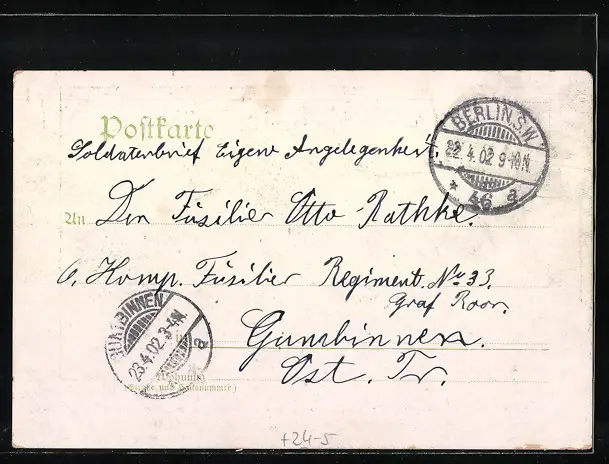 Postkarte
Soldatenbrief Eigene Angelegenheit.
BERLIN.S.W.
22.4.02.9-10N.
* 46 a
An Den Füsilier Otto Rathke.
6. Komp. Füsilier Regiment. No 33.
Graf Roon.
GUMBINNEN
23.4.02.3-4N.
a
Gumbinnen.
Ost. Pr.
Wohnung
(Straße und Hausnummer)
+24-5